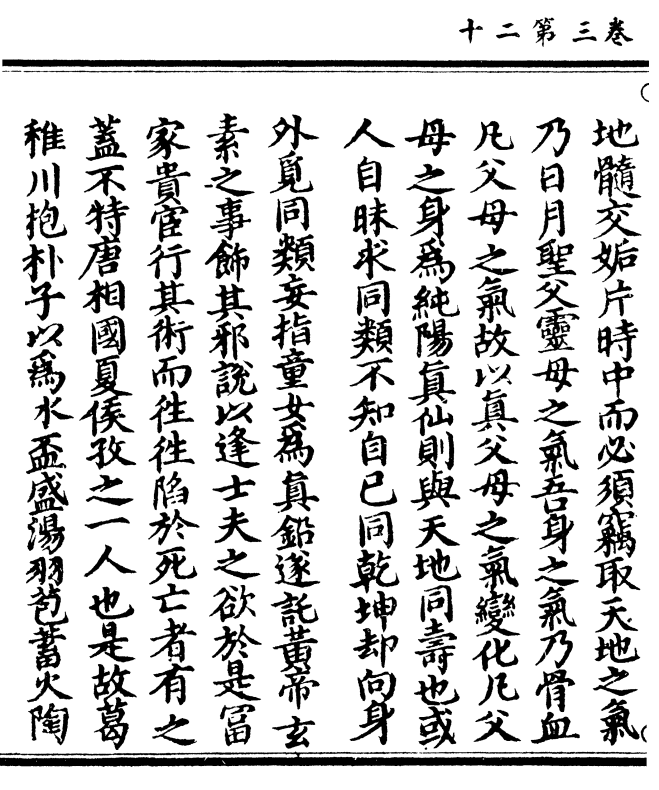 卷三第二十
地髓交姤片時中而必須竊取天地之氣
乃日月聖父靈母之氣吾身之氣乃骨血
凡父母之氣故以眞父母之氣變化凡父
母之身爲純陽眞仙則與天地同壽也或
人自昧求同類不知自己同乾坤却向身
外覓同類妄指童女爲眞鉛遂託黃帝玄
素之事飾其邪說以逢士夫之欲於是冨
家貴宦行其術而徃徃陷於死亡者有之
蓋不特唐相國夏侯孜之一人也是故葛
稚川抱朴子以爲水盃盛湯羽苞蓄火陶